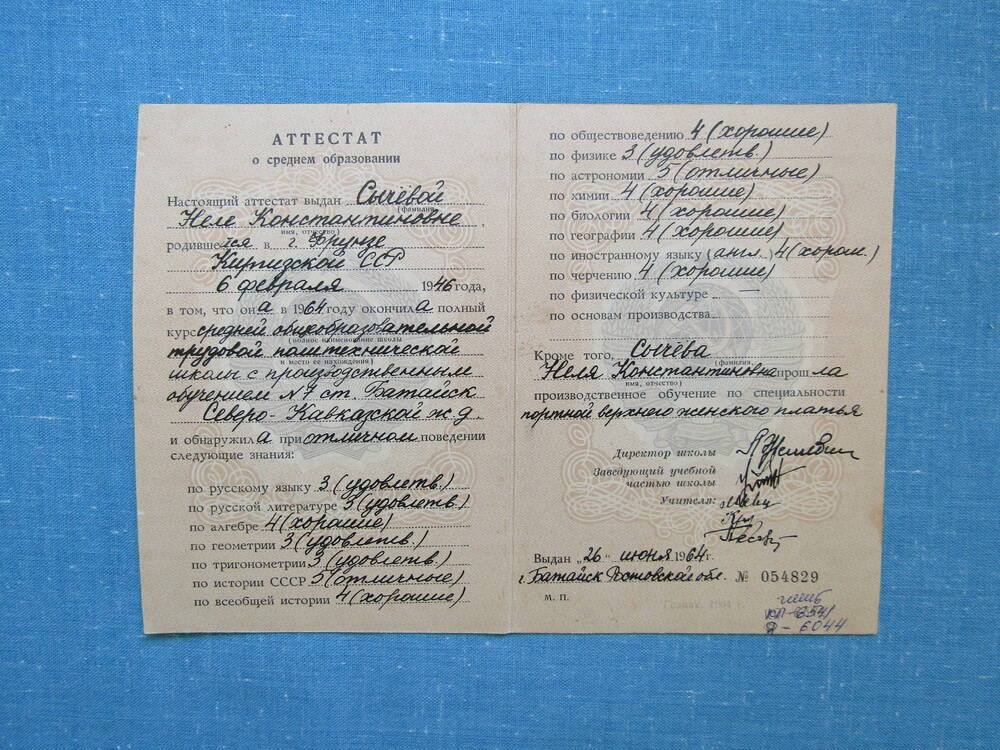 АТТЕСТАТ
о среднем образовании
Настоящий аттестат выдан Сычёвой
(фамилия)
Неле Константиновне,
имя, отчество)
родившейся в г. Фрунзе
Киргизской ССР
6 февраля 1946 года,
в том, что она в 1964 году окончила полный
курс средней общеобразовательной
(полное наименование школы
трудовой политехнической
и место ее нахождения)
школы с производственным
обучением №7 ст. Батайск
Северо-Кавказской ж.д.
и обнаружила при отличном поведении
следующие знания:
по русскому языку 3 (удовлетв.)
по русской литературе 3 (удовлетв.)
по алгебре 4 (хорошие)
по геометрии 3 (удовлетв.)
по тригонометрии 3 (удовлетв.)
по истории СССР 5 (отличные)
по всеобщей истории 4 (хорошие)
по обществоведению 4 (хорошие)
по физике 3 (удовлетв.)
по астрономии 5 (отличные)
по химии 4 (хорошие)
по биологии 4 (хорошие)
по географии 4 (хорошие)
по иностранному языку (англ.) 4 (хорош.)
по черчению 4 (хорошие)
по физической культуре —
по основам производства
Кроме того, Сычёва
(фамилия,
Неля Константиновна прошла
имя, отчество)
производственное обучение по специальности
портной верхнего женского платья
Директор школы
Заведующий учебной
частью школы
Учителя:
Выдан „26“ июня 1964 г.
г. Батайск Ростовской обл. № 054829
М. П.
Гознак. 1964 г.
КП-6254/
Д-6044